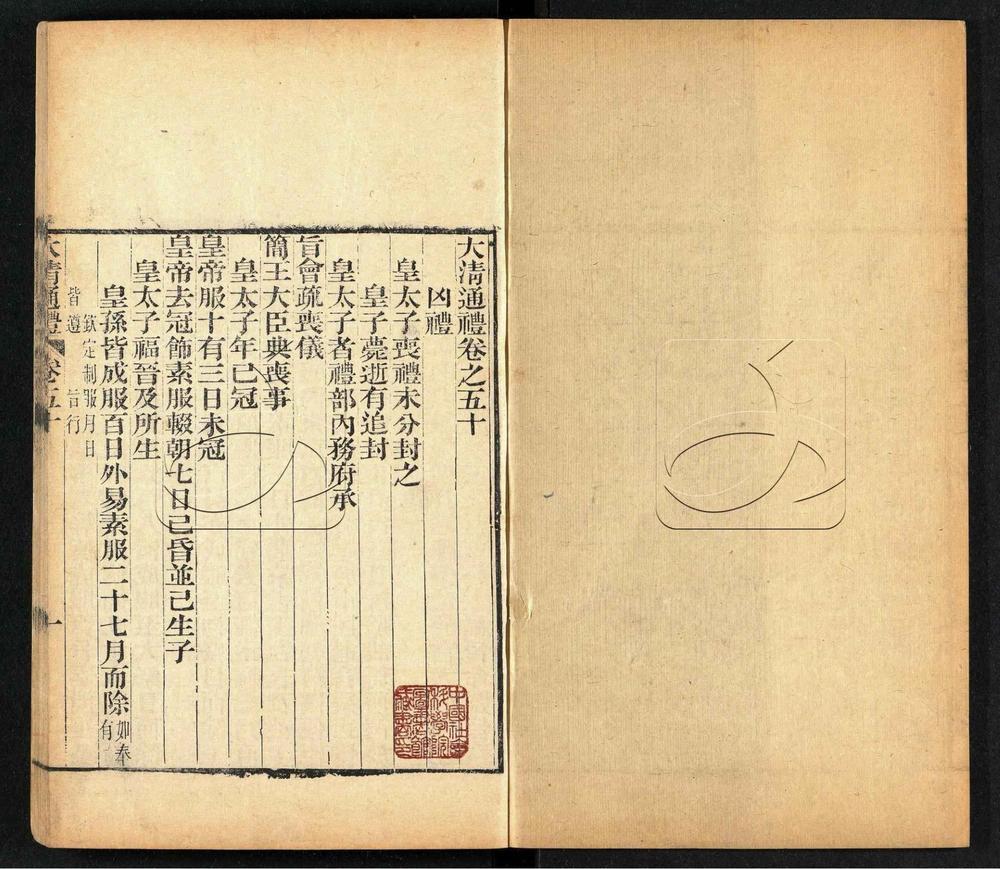 大淸通禮卷之五十
凶禮
皇太子喪禮未分封之
皇子薨逝有追封
皇太子者禮部內務府承
旨會疏喪儀
簡王大臣典喪事
皇太子年已冠
皇帝服十有三日未冠
皇帝去冠飾素服輟朝七日已昏並已生子
皇太子福晉及所生
皇孫皆成服百日外易素服二十七月而除如奉
有
欽定制服月日
皆遵 旨行
大淸通禮 卷五十 一
中國社
科學院
圖書館
藏書